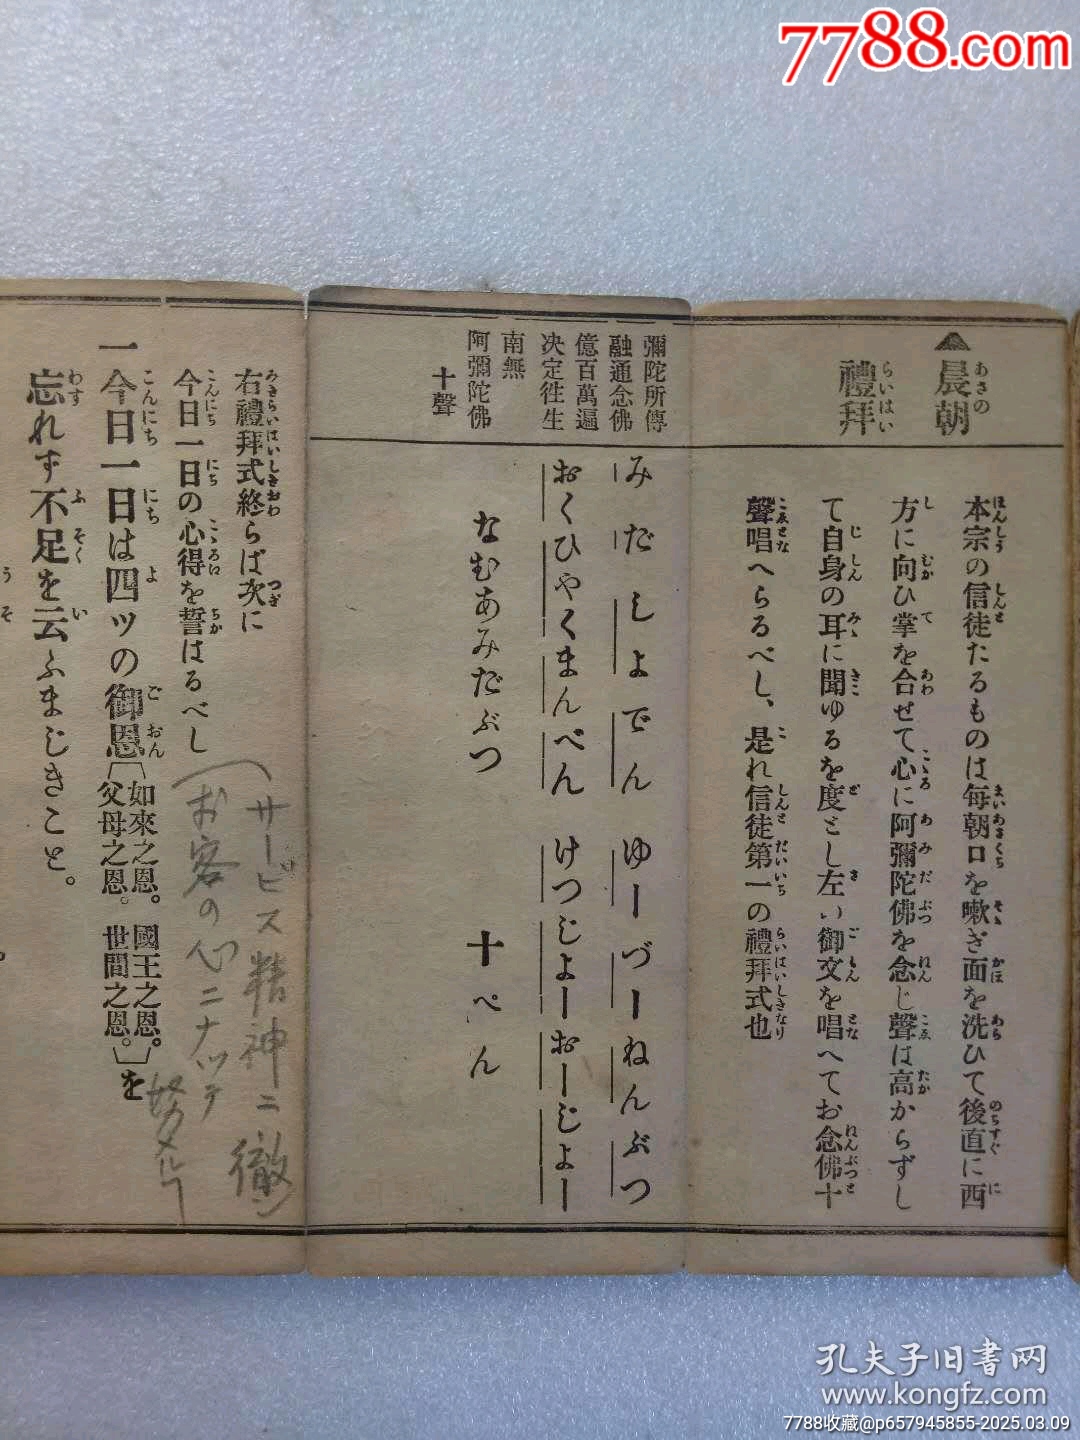 7788.com
▲晨朝
あさの
禮拜
らいはい
本宗の信徒たるものは毎朝口を嗽ぎ面を洗ひて後直に西
方に向ひ掌を合せて心に阿彌陀佛を念じ聲は高からずし
て自身の耳に聞ゆるを度とし左い御文を唱へてお念佛十
聲唱へらるべし、是れ信徒第一の禮拜式也
彌陀所傳
融通念佛
億百萬遍
决定徃生
南無
阿彌陀佛
十聲
みだしよでん ゆーづーねんぶつ
おくひやくまんべん けつじよーおーじよー
なむあみだぶつ 十ぺん
右禮拜式終らば次に
今日一日の心得を誓はるべし
一今日一日は四ッの御恩
如來之恩。國王之恩。
父母之恩。世間之恩。
を
忘れず不足を云ふまじきこと。
サービス精神ニ徹シ
お客の心ニナッテ
努メル
孔夫子旧书网
www.kongfz.com
7788收藏@p657945855-2025.03.09